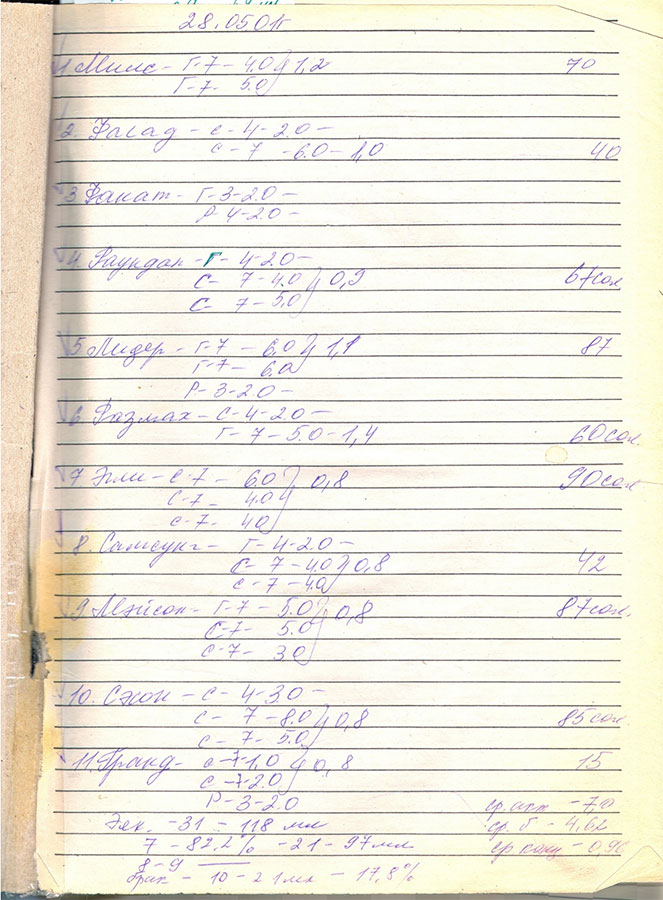 28.05.01г
1 Милс - Г-7 - 4.0 } 1,2 70
Г-7- 5.0
2. Фасад - с-4-2.0 -
с-7 -6.0-1,0 40
3 Факат - Г-3-2.0 -
Р-4-2.0 -
4. Раундап - Г-4-2.0 -
С- 7-4.0 } 0,9 67сол
С- 7-5.0
5 Лидер - Г-7 - 6.0 } 1,1 87
Г-7- 6.0
Р-3-2.0 -
6 Размах - С-4-2.0 -
Г-7-5.0-1,4 60сол.
7 Эгли - С-7 - 6.0 } 0,8 90сол
С-7 - 4.0
с-7- 4.0
8. Самсунг - Г-4-2.0 -
С-7-4.0 } 0,8 42
С-7-4.0
9 Мэйсон - Г-7 - 5.0 } 0,8 87сол.
С-7- 5.0
С-7- 3.0
10. Сэкон - С-4-3.0 -
С- 7-8.0 } 0,8 85сол
С- 7-5.0
11. Гранд - С-7-1.0 } 0,8 15
С-7-2.0
Р-3-2.0 ср. акт - 7,0
Эяк. -31 - 118 мл ср. б - 4,62
7 - 82,2% -21-97мл ср конц - 0,96
8-9 ——
брак - 10-21мл - 17,8%